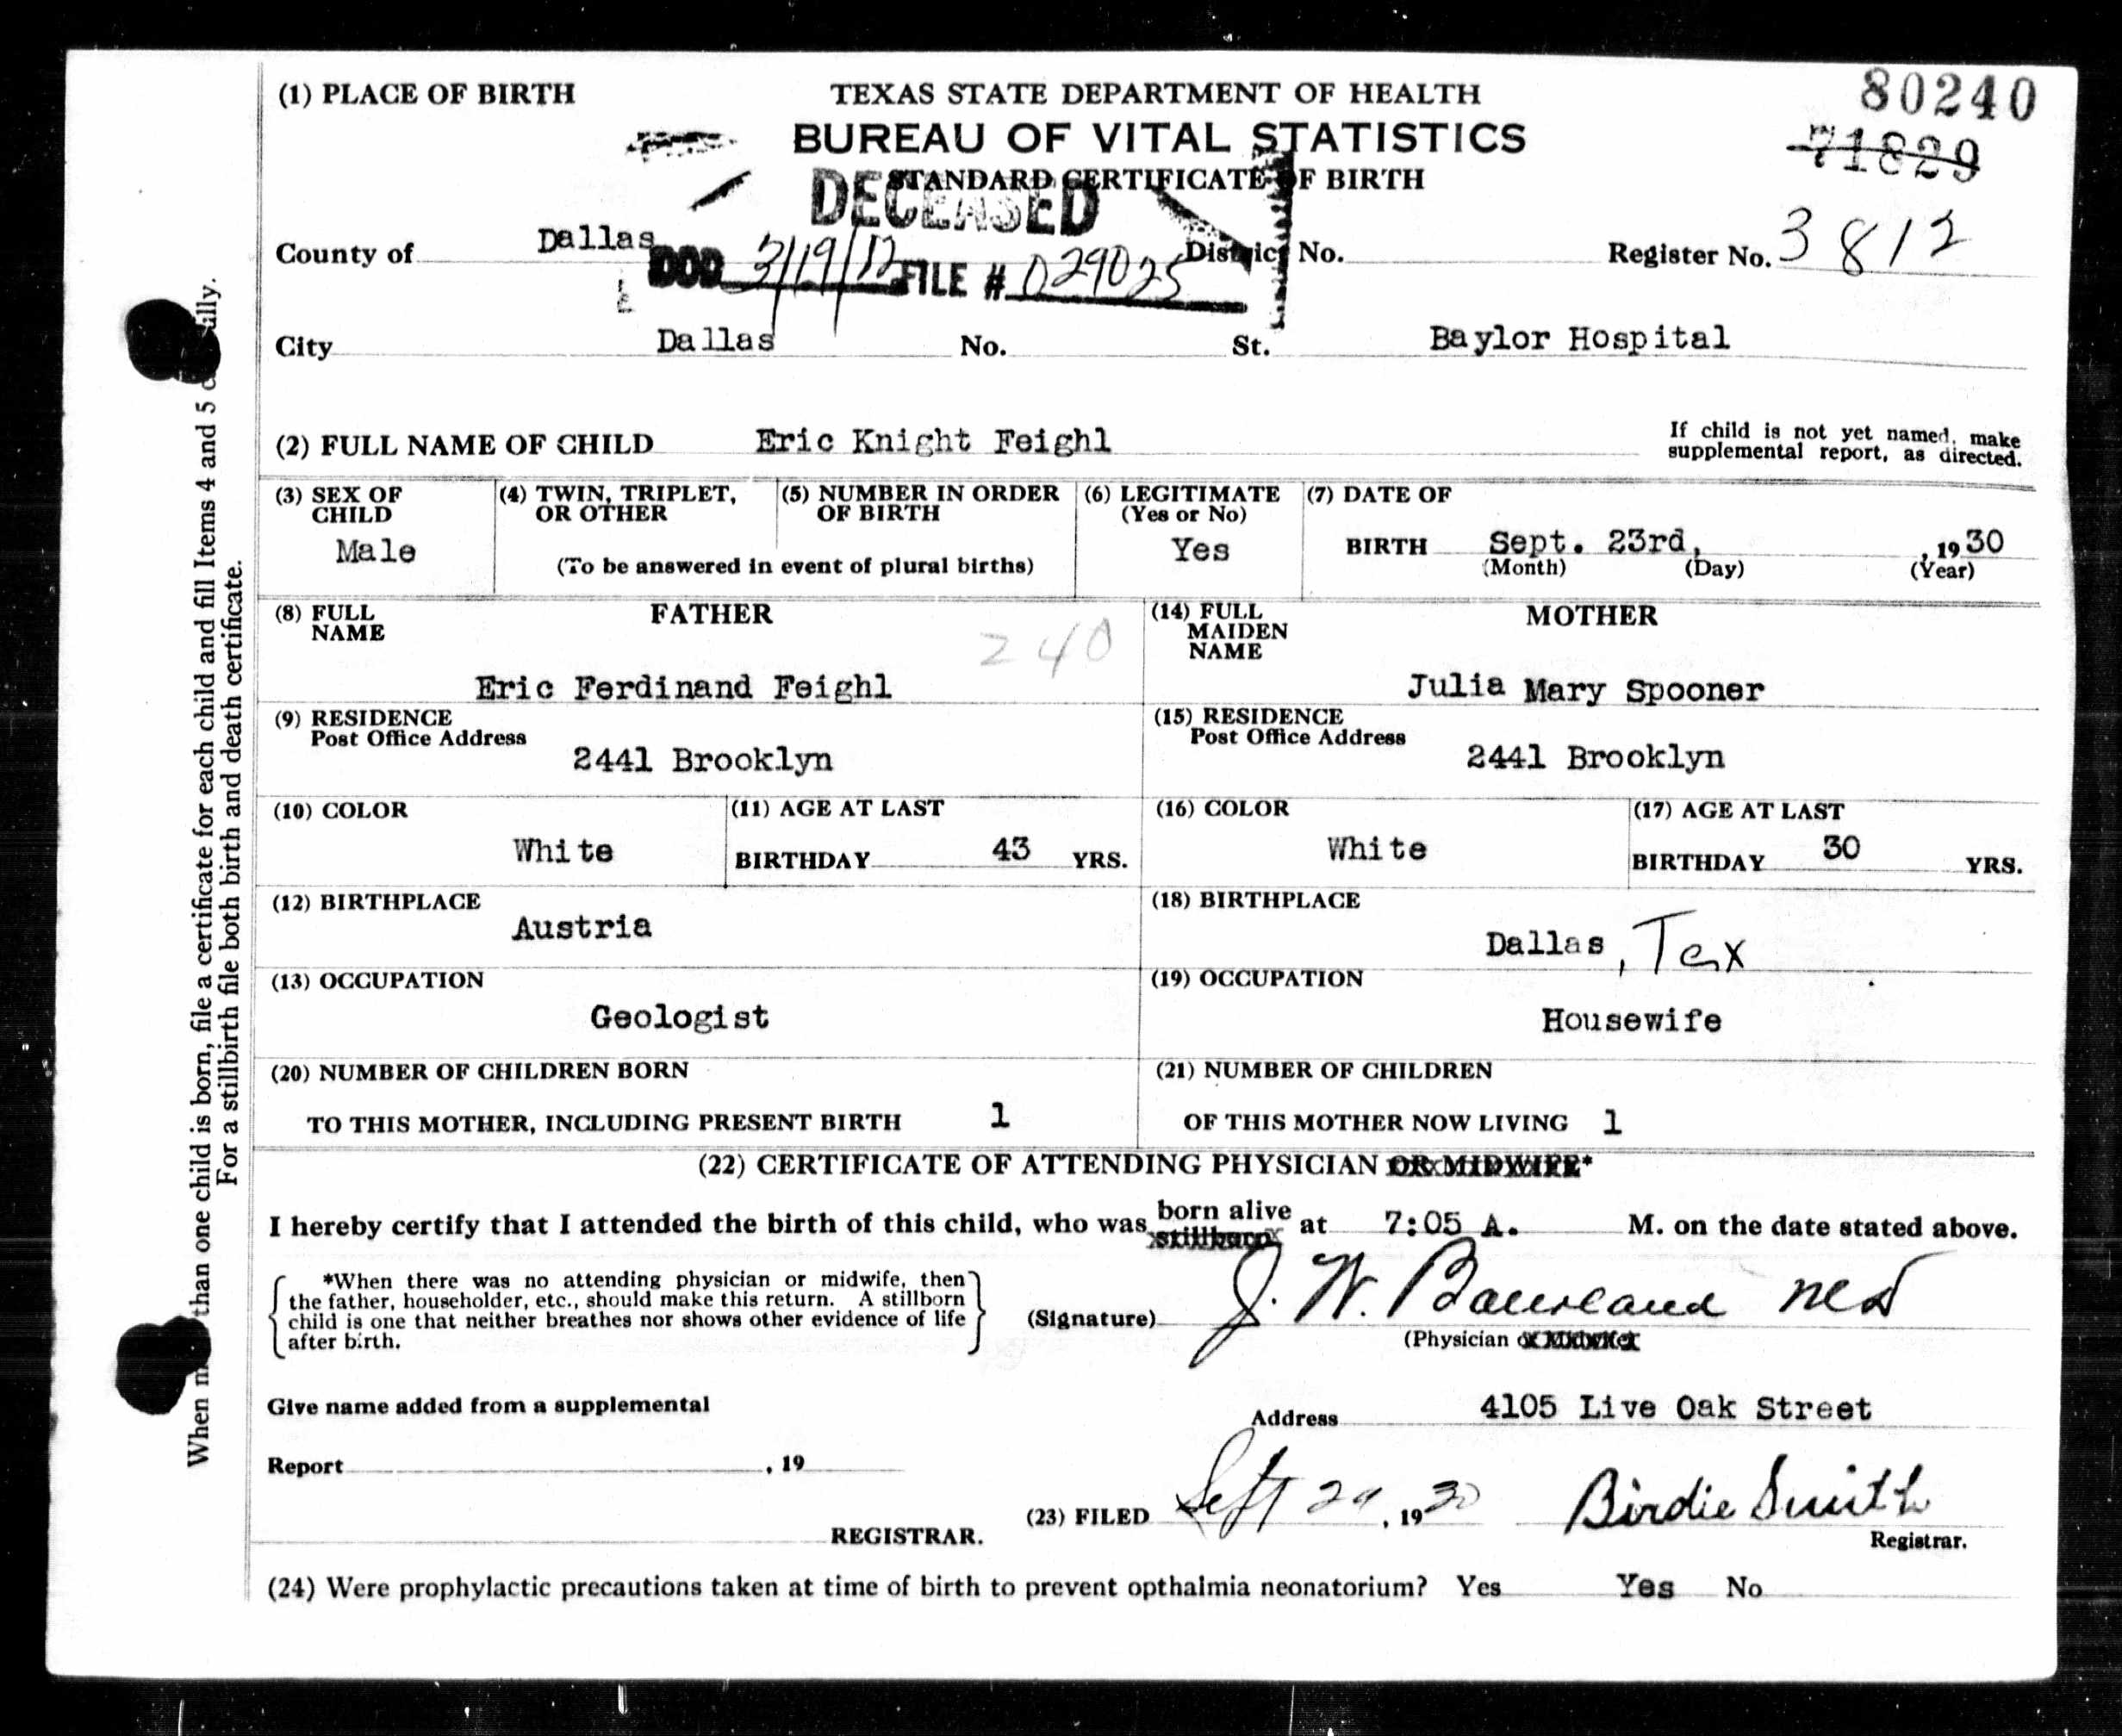 (1) PLACE OF BIRTH
TEXAS STATE DEPARTMENT OF HEALTH
BUREAU OF VITAL STATISTICS
STANDARD CERTIFICATE OF BIRTH
80240
71829
DECEASED
County of Dallas District No. Register No. 3812
DOD 3/19/12 FILE # 029025
City Dallas No. St. Baylor Hospital
(2) FULL NAME OF CHILD Eric Knight Feighl
If child is not yet named, make
supplemental report, as directed.
(3) SEX OF
CHILD
Male
(4) TWIN, TRIPLET,
OR OTHER
(5) NUMBER IN ORDER
OF BIRTH
(To be answered in event of plural births)
(6) LEGITIMATE
(Yes or No)
Yes
(7) DATE OF
BIRTH Sept. 23rd, , 1930
(Month) (Day) (Year)
(8) FULL
NAME
FATHER
240
Eric Ferdinand Feighl
(14) FULL
MAIDEN
NAME
MOTHER
Julia Mary Spooner
(9) RESIDENCE
Post Office Address
2441 Brooklyn
(15) RESIDENCE
Post Office Address
2441 Brooklyn
(10) COLOR
White
(11) AGE AT LAST
BIRTHDAY 43 YRS.
(16) COLOR
White
(17) AGE AT LAST
BIRTHDAY 30 YRS.
(12) BIRTHPLACE
Austria
(18) BIRTHPLACE
Dallas, Tex
(13) OCCUPATION
Geologist
(19) OCCUPATION
Housewife
(20) NUMBER OF CHILDREN BORN
TO THIS MOTHER, INCLUDING PRESENT BIRTH 1
(21) NUMBER OF CHILDREN
OF THIS MOTHER NOW LIVING 1
(22) CERTIFICATE OF ATTENDING PHYSICIAN OR MIDWIFE*
I hereby certify that I attended the birth of this child, who was born alive stillborn at 7:05 A. M. on the date stated above.
*When there was no attending physician or midwife, then
the father, householder, etc., should make this return. A stillborn
child is one that neither breathes nor shows other evidence of life
after birth.
(Signature) J. W. Bourland MD
(Physician or Midwife)
Give name added from a supplemental
Address 4105 Live Oak Street
Report , 19
(23) FILED Sept , 1930 Birdie Smith
REGISTRAR.
Registrar.
(24) Were prophylactic precautions taken at time of birth to prevent opthalmia neonatorium? Yes Yes No
When than one child is born, file a certificate for each child and fill Items 4 and 5
For a stillbirth file both birth and death certificate.